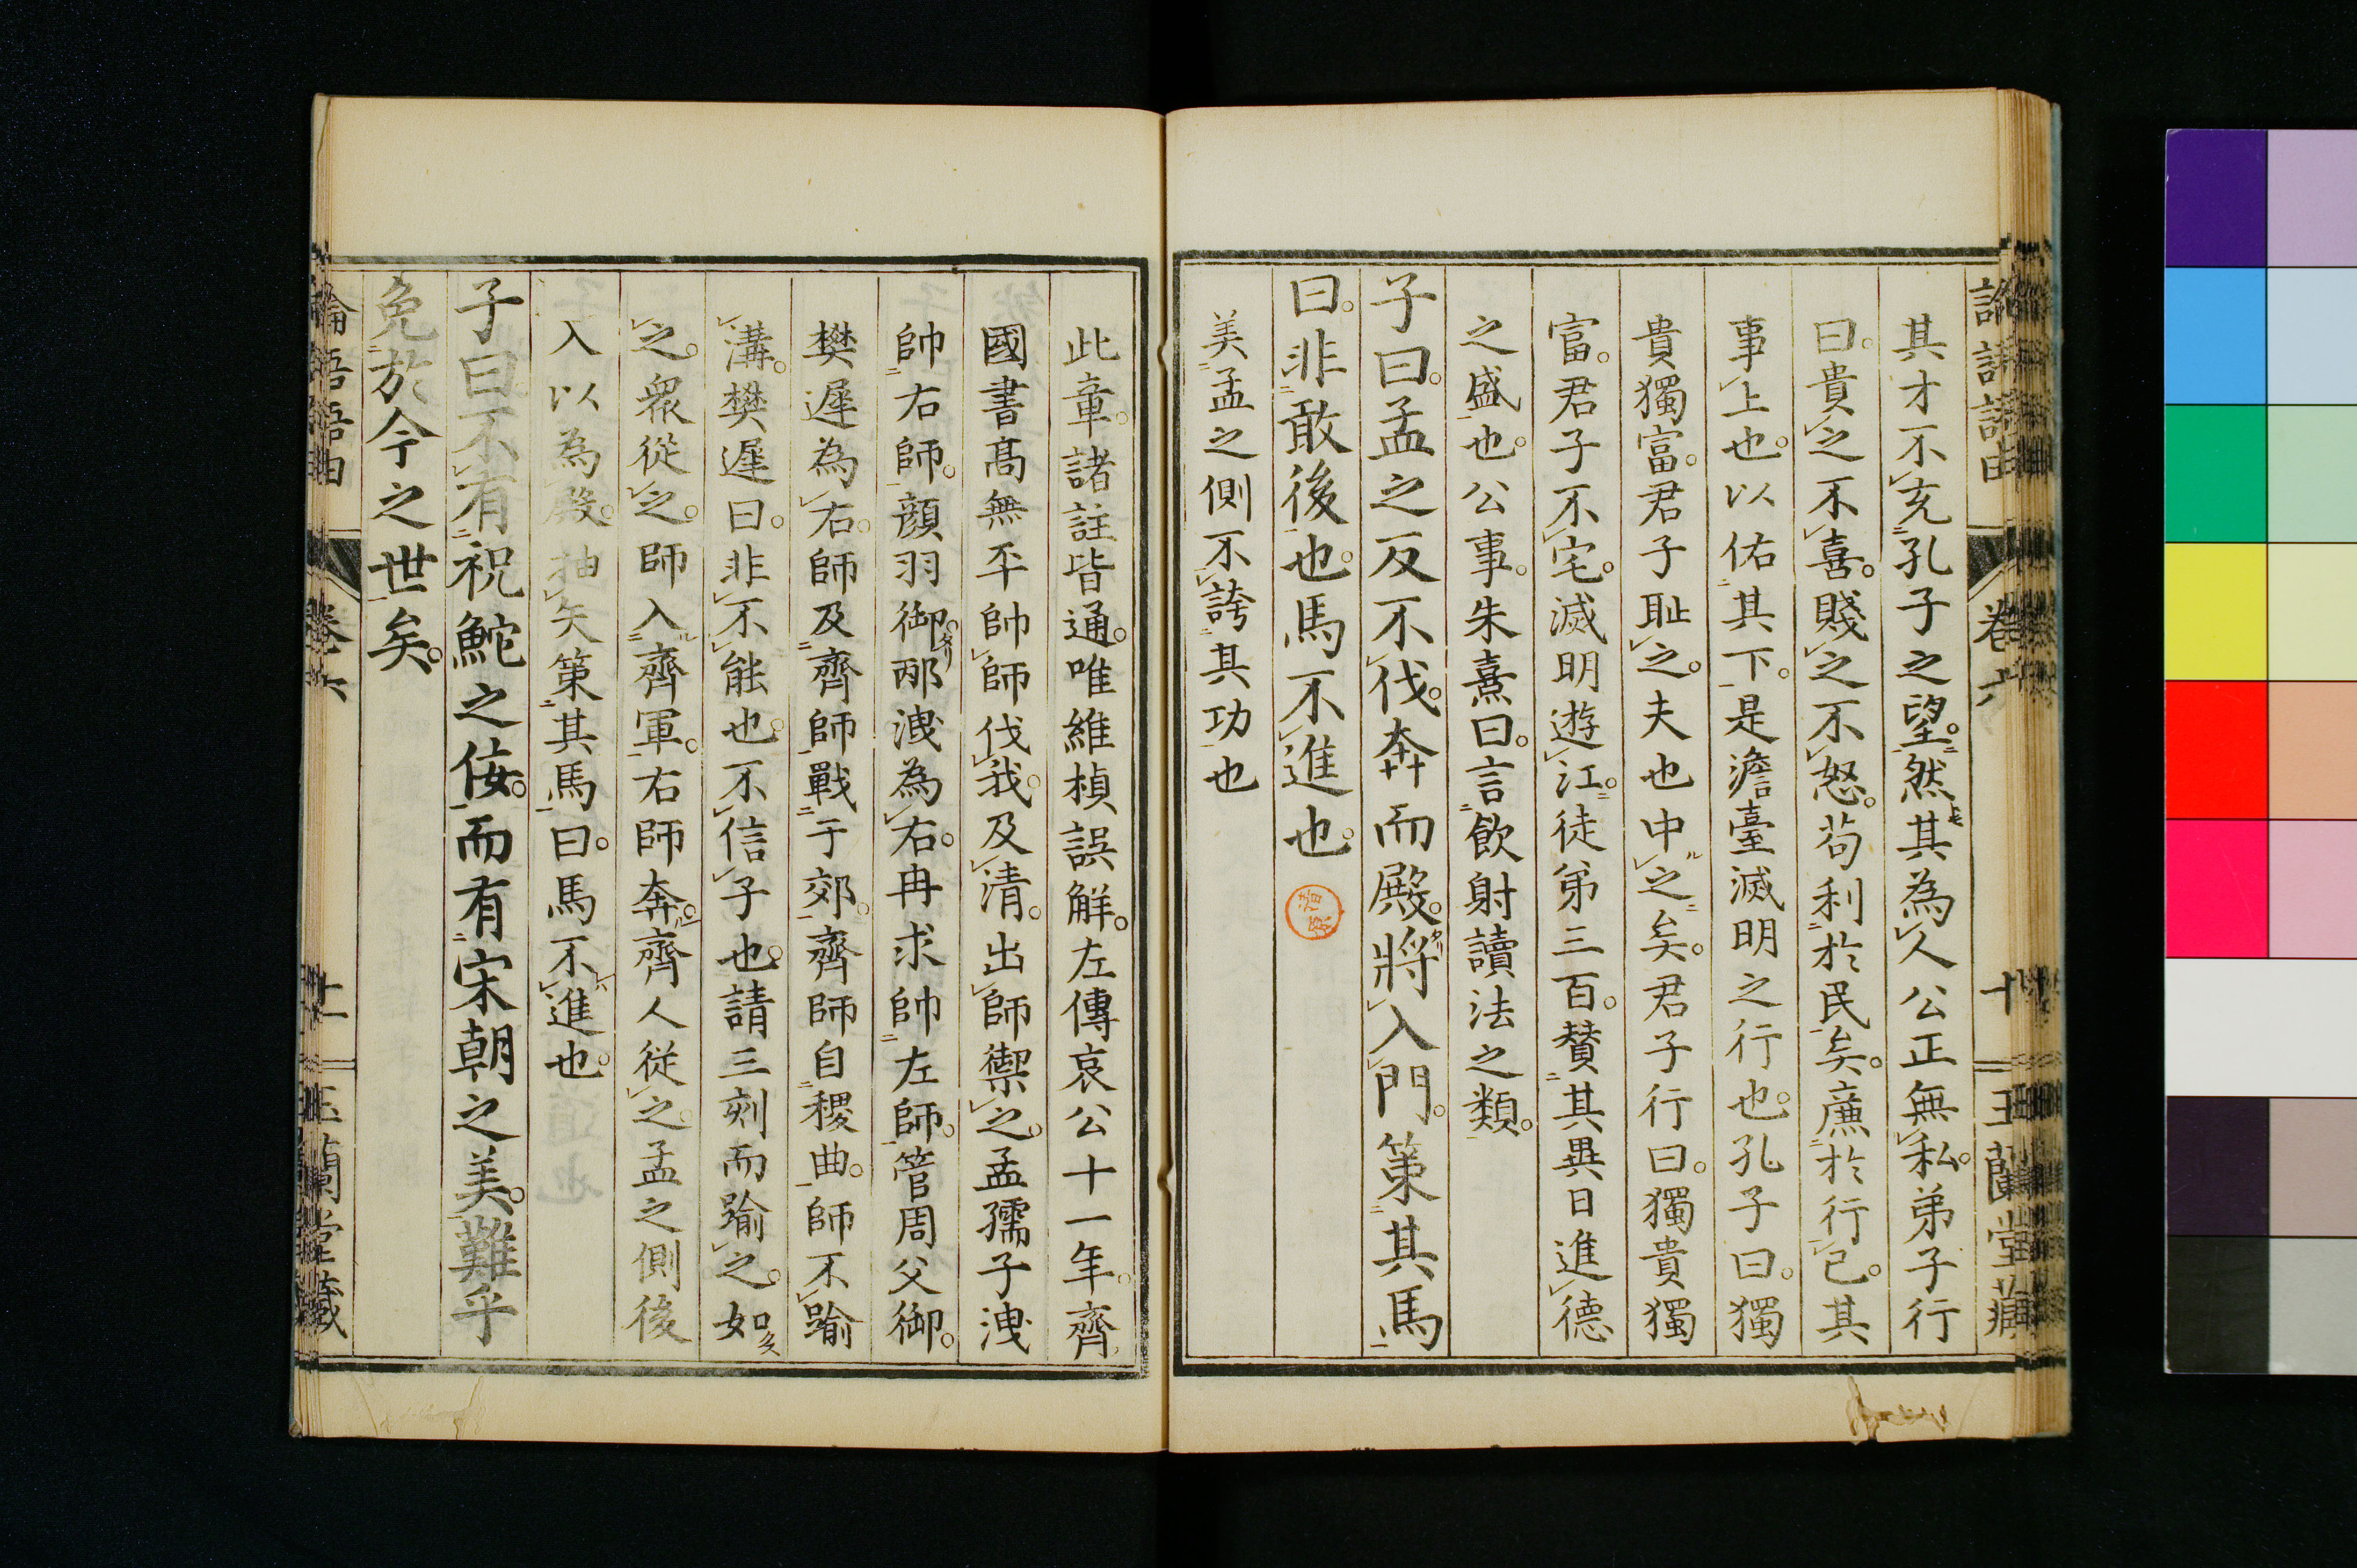 論語語由 卷六 十 玉蘭堂藏
其才不充孔子之望然其為人公正無私弟子行
曰貴之不喜賤之不怒苟利於民矣廉於行已其
事上也以佑其下是澹臺滅明之行也孔子曰獨
貴獨富君子恥之夫也中之矣君子行曰獨貴獨
富君子不宅滅明遊江徒弟三百贊其異日進德
之盛也公事朱熹曰言飲射讀法之類
子曰孟之反不伐奔而殿將入門策其馬
曰非敢後也馬不進也
美孟之側不誇其功也
此章諸註皆通唯維楨誤解左傳哀公十一年齊
國書高無㔻帥師伐我及清出師禦之孟孺子洩
帥右師顏羽御邴洩為右冉求帥左師管周父御
樊遲為右師及齊師戰于郊齊師自稷曲師不踰
溝樊遲曰非不能也不信子也請三刻而踰之如
之眾從之師入齊軍右師奔齊人從之孟之側後
入以為殿抽矢策其馬曰馬不進也
子曰不有祝鮀之佞而有宋朝之美難乎
免於今之世矣
論語語由 卷六 十一 玉蘭堂藏